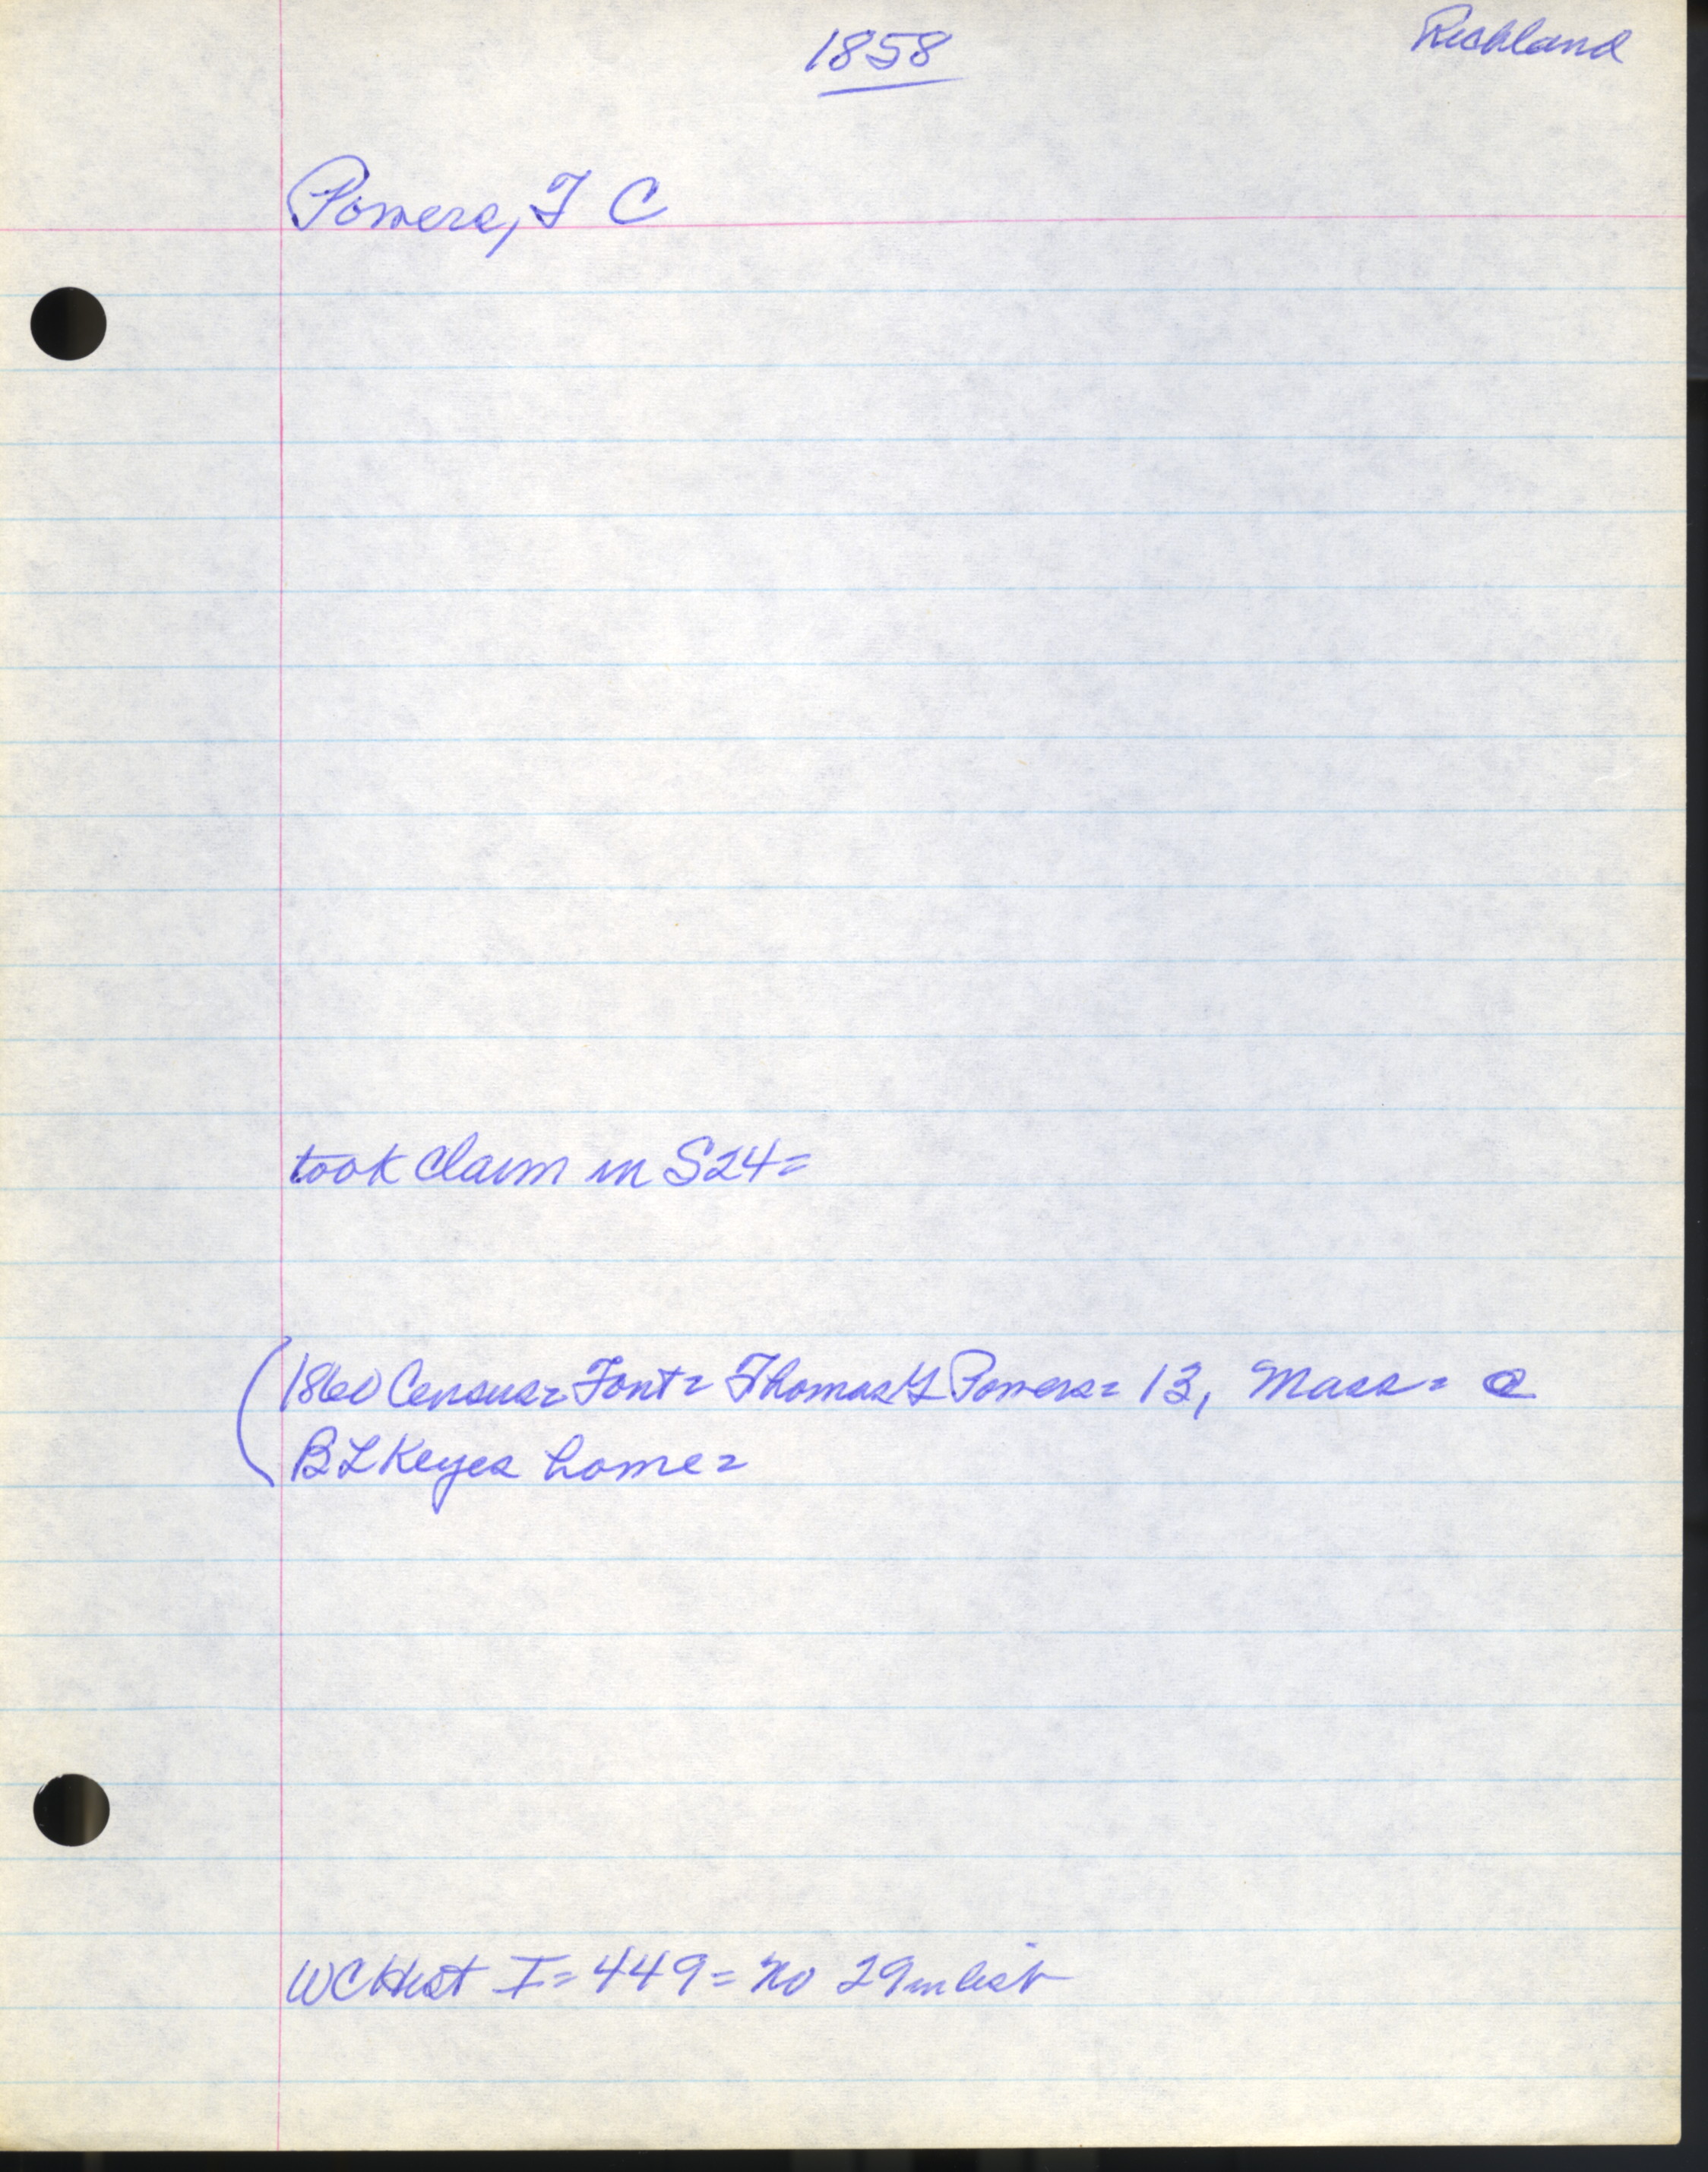 1858
Richland
Powers, T C
took claim in S24=
(1860 Census= Font= Thomas Y Powers= 13, Mass= @
B L Keyes home=
WC Hist I= 449= no 29 in list